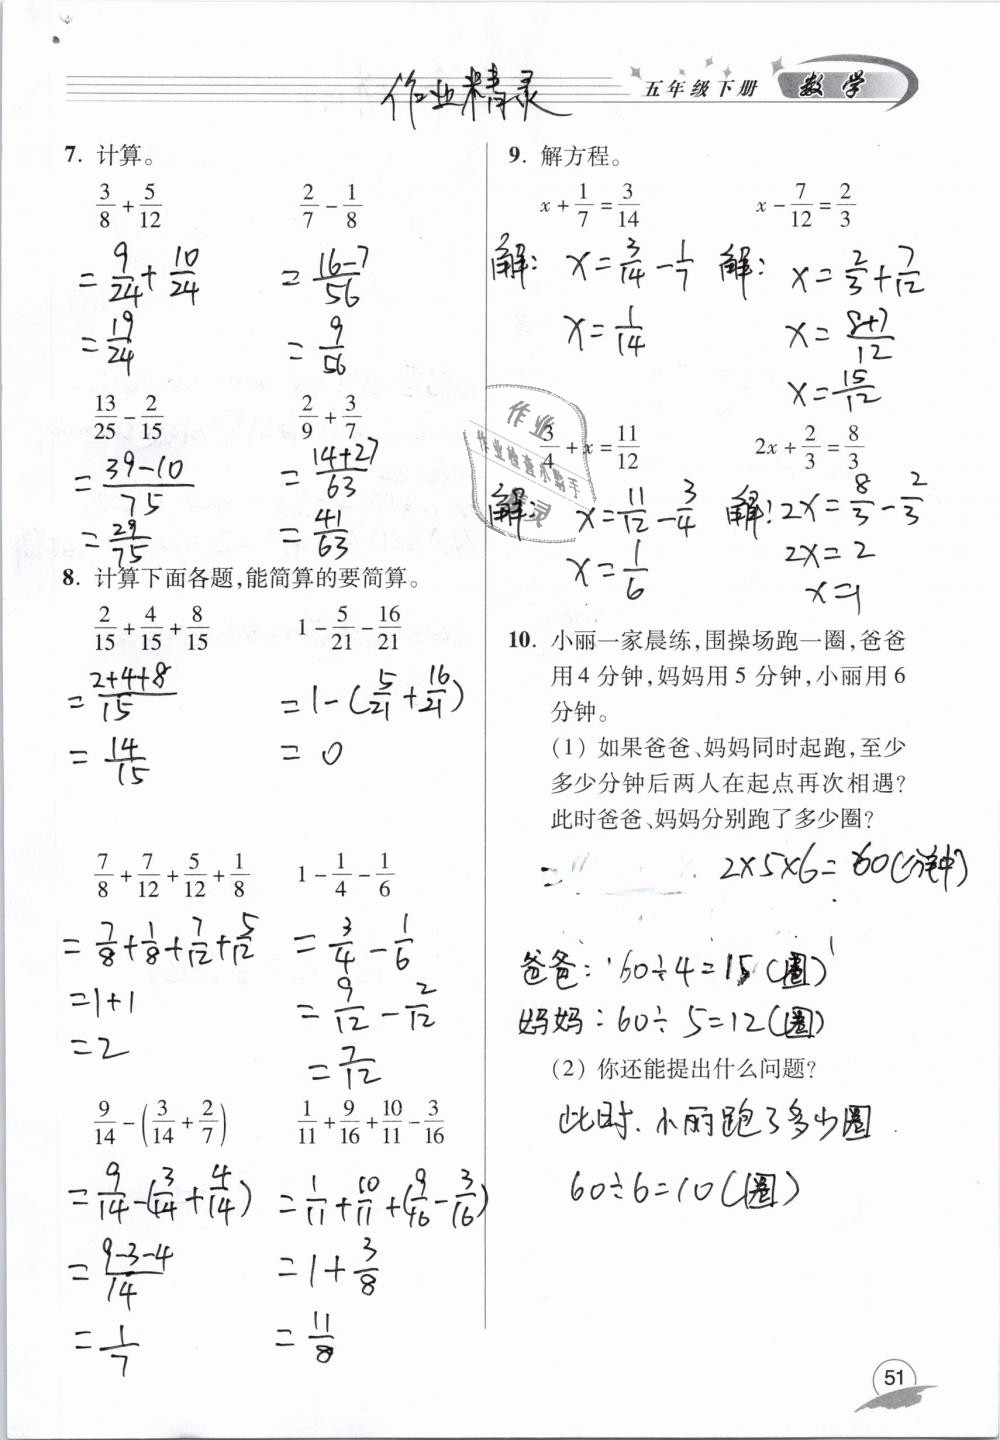 作业精灵
五年级下册 数学
7. 计算。
3/8 + 5/12
= 9/24 + 10/24
= 19/24
2/7 - 1/8
= (16-7)/56
= 9/56
13/25 - 2/15
= (39-10)/75
= 29/75
2/9 + 3/7
= (14+27)/63
= 41/63
8. 计算下面各题,能简算的要简算。
2/15 + 4/15 + 8/15
= (2+4+8)/15
= 14/15
1 - 5/21 - 16/21
= 1-(5/21 + 16/21)
= 0
7/8 + 7/12 + 5/12 + 1/8
= 7/8 + 1/8 + 7/12 + 5/12
= 1+1
= 2
1 - 1/4 - 1/6
= 3/4 - 1/6
= 9/12 - 2/12
= 7/12
9/14 - (3/14 + 2/7)
= 9/14 - (3/14 + 4/14)
= (9-3-4)/14
= 1/7
1/11 + 9/16 + 10/11 - 3/16
= 1/11 + 10/11 + (9/16 - 3/16)
= 1 + 3/8
= 11/8
9. 解方程。
x + 1/7 = 3/14
解: x = 3/14 - 1/7
x = 1/14
x - 7/12 = 2/3
解: x = 2/3 + 7/12
x = (8+7)/12
x = 15/12
3/4 + x = 11/12
解: x = 11/12 - 3/4
x = 1/6
2x + 2/3 = 8/3
解: 2x = 8/3 - 2/3
2x = 2
x = 1
作业
作业检查小帮手
10. 小丽一家晨练,围操场跑一圈,爸爸
用 4 分钟,妈妈用 5 分钟,小丽用 6
分钟。
(1) 如果爸爸、妈妈同时起跑,至少
多少分钟后两人在起点再次相遇?
此时爸爸、妈妈分别跑了多少圈?
2×5×6=60(分钟)
爸爸: 60÷4=15(圈)
妈妈: 60÷5=12(圈)
(2) 你还能提出什么问题?
此时、小丽跑了多少圈
60÷6=10(圈)
51